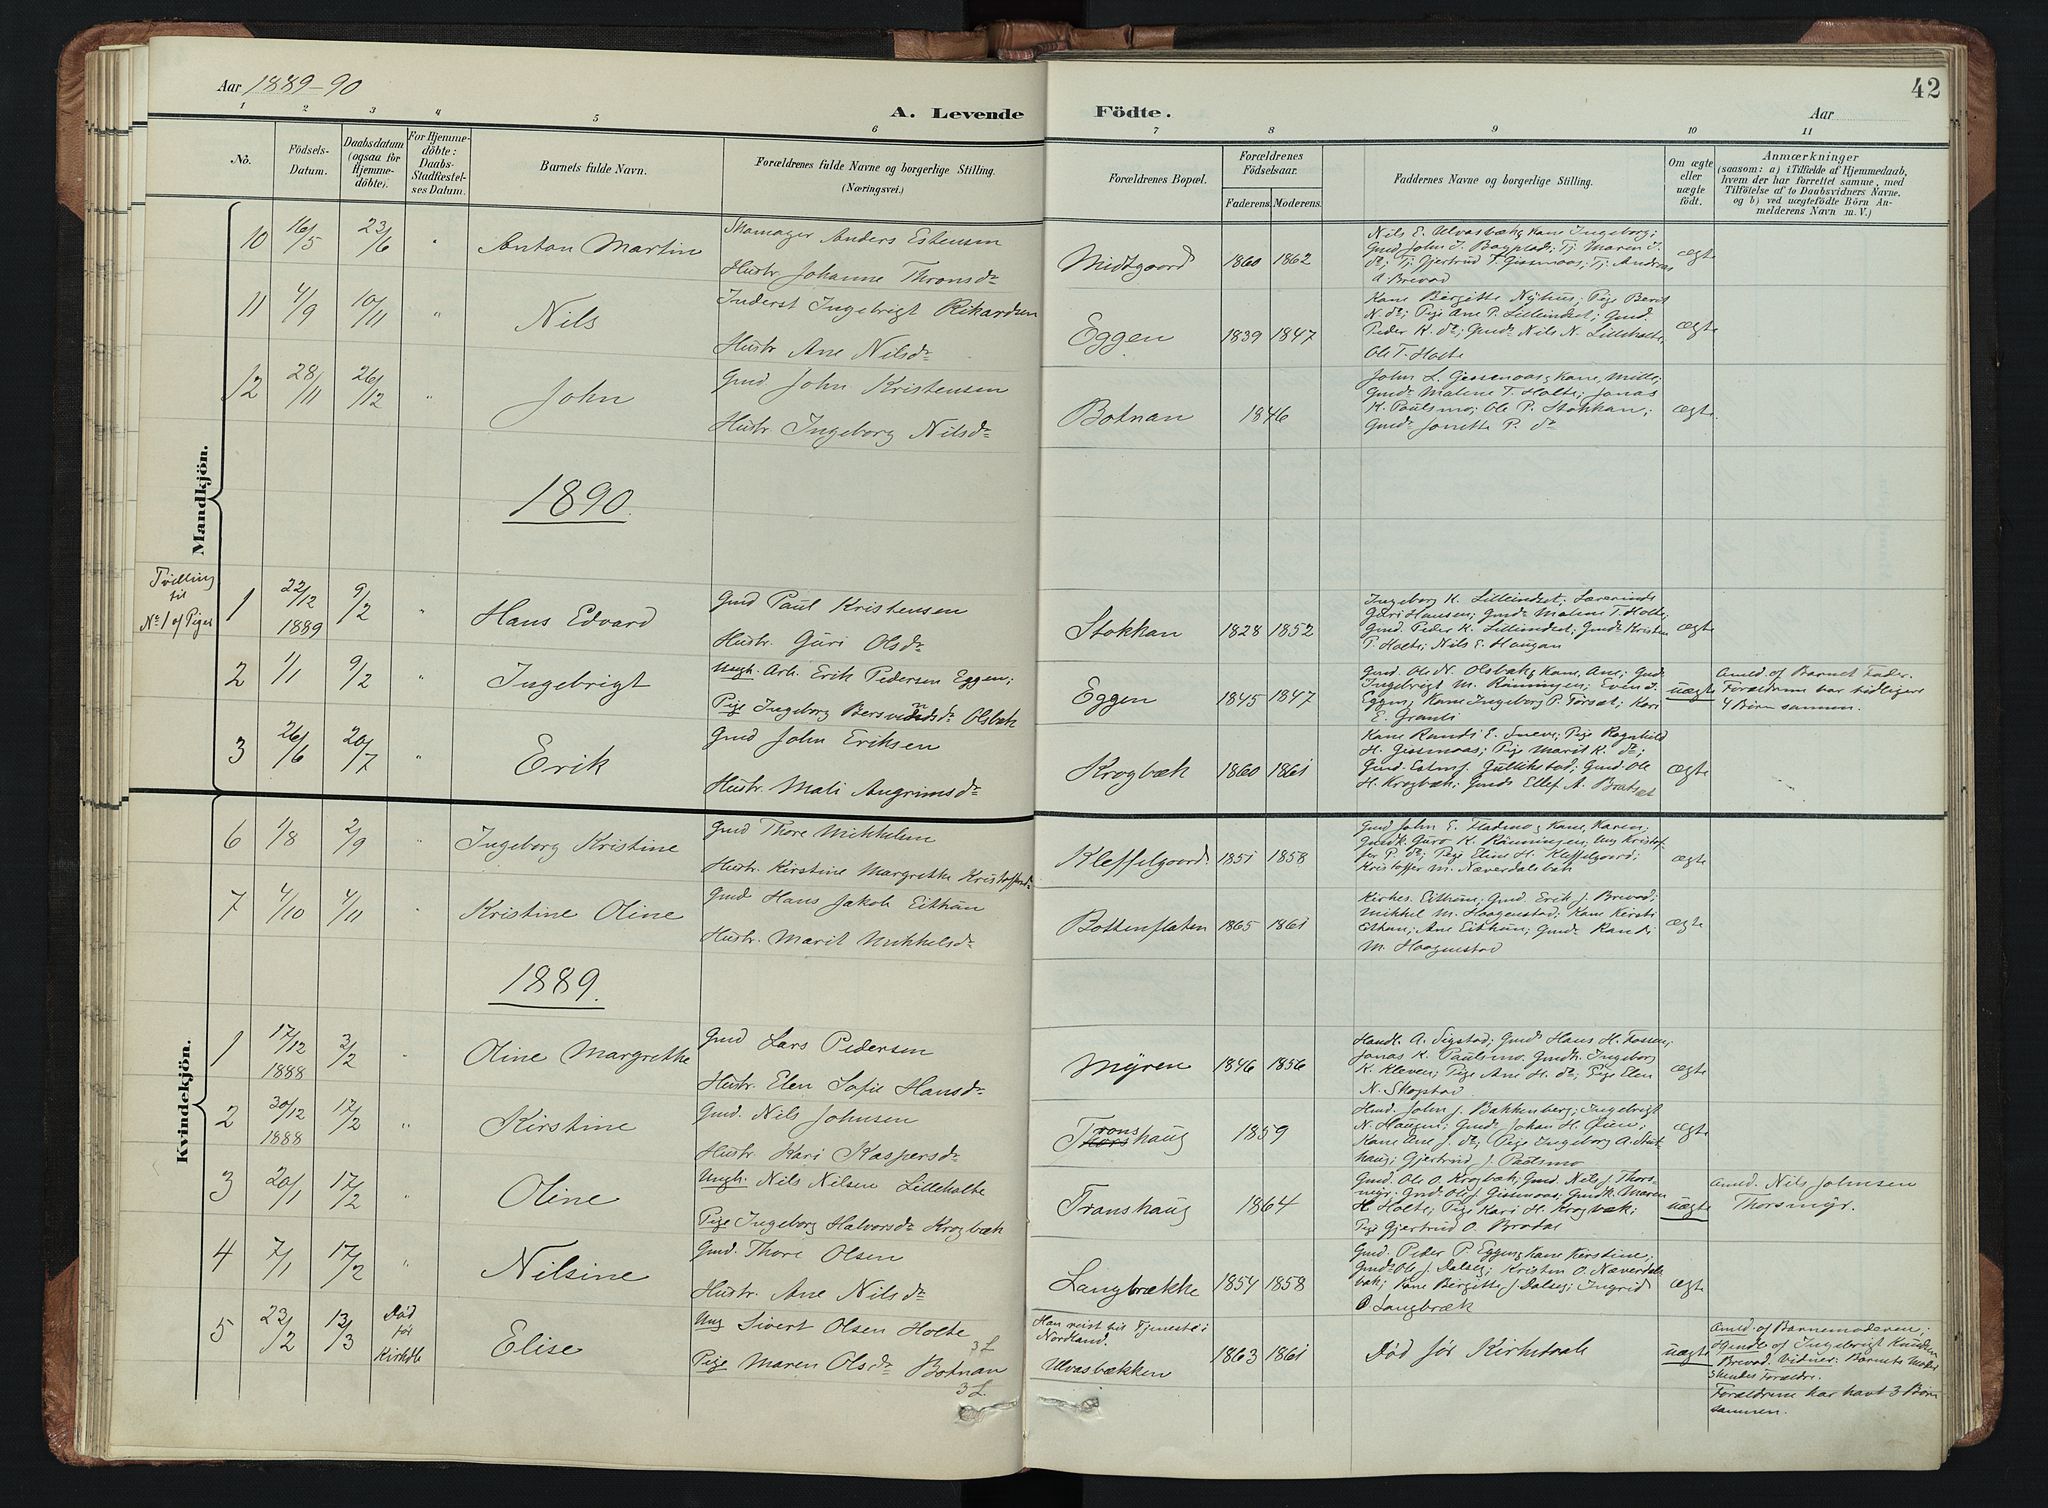 Aar 1889-90
A. Levende
Födte.
Aar
42
1 2 3 4 5 6 7 8 9 10 11
No.
Födsels-
Datum.
Daabsdatum
(ogsaa for
Hjemme-
döbte).
For Hjemme-
döbte:
Daabs-
Stadfæstel-
ses Datum.
Barnets fulde Navn.
Forældrenes fulde Navne og borgerlige Stilling.
(Næringsvei.)
Forældrenes Bopæl.
Forældrenes
Födselsaar.
Faderens. Moderens.
Faddernes Navne og borgerlige Stilling.
Om ægte
eller
uægte
födt.
Anmærkninger
(saasom: a) i Tilfælde af Hjemmedaab,
hvem der har forrettet samme, med
Tilföielse af to Daabsvidners Navne.
og b) ved uægtefödte Börn An-
melderens Navn m. V.)
Mandkjön.
10 16/5 23/6 " Anton Martin
Skomager Anders Estensen
Hustr. Johanne Thronsdr
Midtgaard 1860 1862
Nils E. Ulvasbæk; Kane Ingeborg;
Gmd John J. Bagplads; Tj. Maren J.
dr; Tj. Gjertrud T. Gissenaas; Tj. Andreas
A Brevad
ægte
11 4/9 10/11 " Nils
Inderst Ingebrigt Rikardsen
Hustr Ane Nilsdr
Eggen 1839 1847
Kane Bergitte Nyhus; Pige Berit
N. dr; Pige Ane P. Lilleindset; Gmd.
Peder K. dr; Gmds Nils N. Lilleholte,
Ole T. Holte
ægte
12 28/11 26/12 " John
Gmd. John Kristensen
Hustr. Ingeborg Nilsdr
Botnan 1846
John L. Gissenaas; Kane Mille;
Gmdr Malene T. Holte; Jonas
K. Paulsmo; Ole P. Stokkan;
Gmdr Jonette P. dr
ægte
1890.
Tvilling
til
No 1 af Piger
1 22/12 1889 9/2 " Hans Edvard
Gmd Paul Kristensen
Hustr. Guri Olsdr
Stokkan 1828 1852
Ingeborg K. Lilleindset; Lærerinde
Guri Hansen; Gmdr Malene T. Holte;
Gmd. Peder K. Lilleindset; Gmds Kristen
T. Holte; Nils E. Haugan
ægte
2 1/1 9/2 " Ingebrigt
Ungk. Arb. Erik Pedersen Eggen;
Pige Ingeborg Olsbæk
Eggen 1845 1847
Gmd. Ole N. Olsbæk; Kane Ane; Gmd
Ingebrigt M. Rönningen; Even J.
Eggen; Kane Ingeborg P. Forsæt; Kari
E. Granli
uægte
Anmd. af Barnets Fader.
Forældrene har tidligere
4 Börn sammen.
3 26/6 20/7 " Erik
Gmd John Eriksen
Hustr. Mali Angrimsdr
Krogbæk 1860 1861
Kane Randi E. Sneve; Pige Ragnhild
H. Gissenaas; Pige Marit K. dr;
Gmd. Gullikstad; Gmd. Ole
H. Krogbæk; Gmds Ellef A. Bratset
ægte
Kvindekjön.
6 1/8 2/9 " Ingeborg Kristine
Gmd Thore Mikkelsen
Hustr. Kirstine Margrethe Kristoffersdr
Kleffelgaard 1851 1858
Gmd John E. Fladmo; Kane Karen;
Gmdk. Guro K. Rönningen; Ung Kristof-
fer P. dr; Pige Eline H. Kleffelgaard;
Kristoffer M. Næverdalsbæk
ægte
7 4/10 4/11 " Kristine Oline
Gmd Hans Jakob Eithun
Hustr. Marit Mikkelsdr
Bottenflaten 1865 1861
Kirkes. Eithun; Gmd. Erik J. Brevad;
Mikkel M. Haagenstad; Kane Kersti
Eithun; Ane Eithun; Gmdr Randi
M. Haagenstad
ægte
1889.
1 17/12 1888 3/2 " Oline Margrethe
Gmd Lars Pedersen
Hustr. Elen Sofie Hansdr
Myren 1846 1856
Handl. A. Sigstad; Gmds Hans H. Fossen;
Jonas K. Paulsmo; Gmdk. Ingeborg
K. Kleven; Pige Ane H. dr; Pige Elen
N. Skogstad
ægte
2 30/12 1888 17/2 " Kirstine
Gmd. Nils Johnsen
Hustr. Kari Kaspersdr
Tronshaug 1859
Hmd. John J. Bakkenberg; Ingebrigt
N. Haugen; Gmds Johan H. Öien;
Kane Ane J. dr; Pige Ingeborg A.
haug; Gjertrud J. Paulsmo
ægte
3 20/1 17/2 " Oline
Ungk. Nils Nilsen Lilleholte
Pige Ingeborg Halvorsdr Krogbæk
Transhaug 1864
Gmd. Ole O. Krogbæk; Gmd. Nils J. Thors-
myr; Gmd. Ole J. Gissenaas; Gmdk. Maren
H. Holte; Pige Kari H. Krogbæk;
Pige Gjertrud O. Brodal
uægte
Anmd. Nils Johnsen
Thorsmyr.
4 7/1 17/2 " Nilsine
Gmd. Thore Olsen
Hustr. Ane Nilsdr
Langbrække 1854 1858
Gmd. Peder P. Eggen; Kane Kerstine;
Gmds Ole J. Dalseg; Kristen O. Næverdals-
bæk; Kane Bergitte J. Dalseg; Ingrid
O Langbræk
ægte
5 23/2 13/3 Död
för
Kirkdb
Elise
Ung Sivert Olsen Holte 3 L
Pige Maren Olsdr Botnan
3 L.
Han reist til Tjeneste i
Nordland.
Ulvasbækken
1863 1861
Död för Kirkedaab
uægte
Anmd. af Barnemoderen;
Hjemdb. af Ingebrigt Knudsen
Brevad. Vidner: Barnets Moder
& hendes Forældre.
Forældrene har havt 3 Börn
sammen.